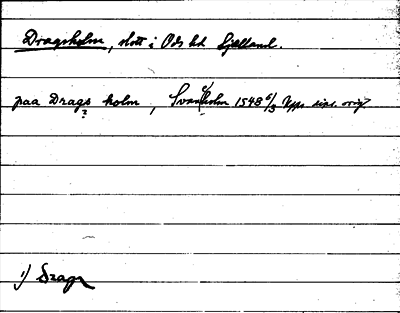 Dragsholm, slott i Ods hd Sjælland.
paa Drags holm, Svanholm 1548 6/3 Upps. dipl. orig.
?
1) Dragz